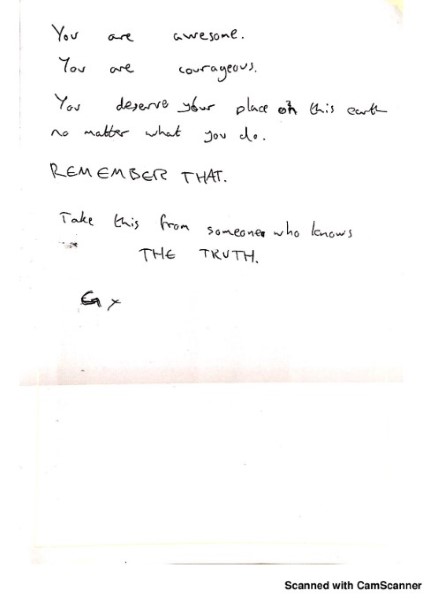 You are awesome.
You are courageous.
You deserve your place on this earth
no matter what you do.
REMEMBER THAT.
Take this from someone who knows
THE TRUTH.
G x
Scanned with CamScanner